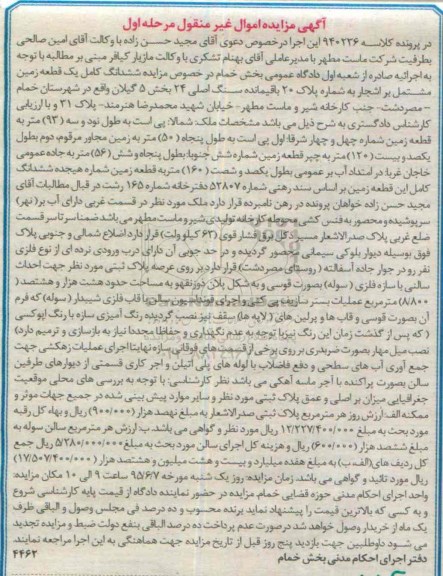 آگهی مزایده اموال غیر منقول مرحله اول
در پرونده کلاسه ۹۴۰۲۳۶ این اجرا درخصوص دعوی آقای مجید حسن زاده با وکالت آقای امین صالحی
بطرفیت شرکت ماست مطهر با مدیرعاملی آقای بهنام تشکری با وکالت مازیار کیافر مبنی بر مطالبه با توجه
به اجرائیه صادره از شعبه اول دادگاه عمومی بخش خمام در خصوص مزایده ششدانگ کامل یک قطعه زمین
مشتمل بر اشجار به شماره پلاک ۲۰ باقیمانده سنگ اصلی ۲۴ بخش ۵ گیلان واقع در شهرستان خمام
- مصردشت- جنب کارخانه شیر و ماست مطهر- خیابان شهید محمدرضا هنرمند- پلاک ۳۱ و با ارزیابی
کارشناس دادگستری به شرح ذیل می باشد مشخصات ملک: شمالا: پی است به طول نود و سه (۹۳) متر به
قطعه زمین شماره چهل و چهار شرقا: اول پی است به طول پنجاه (۵۰) متر به زمین مجاور مرقوم، دوم بطول
یکصد و بیست (۱۲۰) متر به چپر قطعه زمین شماره شش جنوبا: بطول پنجاه و شش (۵۶) متر به جاده عمومی
خاجان غربا: در امتداد آب بر عمومی بطول یکصد و شصت (۱۶۰) متر به قطعه زمین شماره هیجده ششدانگ
کامل این قطعه زمین بر اساس سند رهنی شماره ۵۳۸۰۷ دفترخانه شماره ۱۶۵ رشت در قبال مطالبات آقای
مجید حسن زاده خواهان پرونده در رهن نامبرده قرار دارد ملک مورد نظر در قسمت غربی دارای آب بر (نهر)
سرپوشیده و محصور به فنس کشی محوطه کارخانه تولیدی شیر و ماست مطهر می باشد ضمنا سرتاسر قسمت
ضلع غربی پلاک صدرالاشعار سیم دکل برق فشار قوی (۶۳ کیلو ولت) قرار دارد اضلاع شمالی و جنوبی پلاک
فوق بوسیله دیوار بلوکی سیمانی محصور گردیده و در حد جوبی آن دارای درب ورودی نرده ای از نوع فلزی
نفر رو در جوار جاده آسفالته (روستای مصردشت) قرار دارد بر روی عرصه پلاک ثبتی مورد نظر جهت احداث
سالنی با سازه فلزی (سوله) بصورت قوسی و به شکل پلان ذوزنقه به مساحت حدود هشت هزار و هشتصد (
۸/۸۰۰) مترمربع عملیات بستر سازی، پی کنی و اجرای فونداسیون سالن با قاب فلزی شیبدار (سوله) که فرم
آن بصورت قوسی و قاب ها و پرلین های (لاپه ها) سقف نیز نصب گردیده رنگ آمیزی سازه با رنگ اپوکسی
( که پس از گذشت زمان این رنگ نیز با توجه به عدم نگهداری و حفاظ مجددا نیاز به بازسازی و ترمیم دارد)
نصب میل مهار بصورت ضربدری بر روی برخی از قسمت های فوقانی سازه نهایتا اجرای عملیات زهکشی جهت
جمع آوری آب های سطحی و دفع فاضلاب با لوله های پلی اتیلن و اجر کاری قسمتی از دیوارهای طرفین
سالن بصورت پراکنده با آجر ماسه آهکی می باشد نظر کارشناسی: با توجه به بررسی های محلی موقعیت
جغرافیایی میزان بر اصلی و عمق پلاک ثبتی مورد نظر و سایر موارد پیش بینی شده در جمیع جهات موثر و
ممکنه الف: ارزش روز هر مترمربع پلاک ثبتی صدرالاشعار به مبلغ نهصد هزار (۹۰۰/۰۰۰) ریال و بهاء کل رقبه
مورد بحث به مبلغ ۱۲/۲۲۷/۴۰۰/۰۰۰ ریال مورد نظر و گواهی می باشد. ب: ارزش هر مترمربع سالن سوله به
مبلغ ششصد هزار (۶۰۰/۰۰۰) ریال و هزینه کل اجرای سالن مورد بحث به مبلغ ۵/۲۸۰/۰۰۰/۰۰۰ ریال جمع
کل ردیف های (الف، ب) به مبلغ هفده میلیارد و بیست و هشت میلیون و هشتصد هزار (۱۷/۵۰۷/۴۰۰/۰۰۰)
ریال مورد تائید و گواهی می باشد. زمان مزایده: روز یک شنبه مورخه ۹۵/۶/۷ ساعت ۹ الی ۱۰ مکان مزایده:
واحد اجرای احکام مدنی حوزه قضایی خمام. مزایده در حضور نماینده دادگاه از قیمت پایه کارشناسی شروع
و به کسی که بالاترین قیمت را پیشنهاد نماید برنده محسوب و ده درصد فی مجلس وصول و الباقی ظرف
یک ماه از خریدار وصول خواهد شد درصورت عدم پرداخت ده درصد الباقی بنفع دولت ضبط و مزایده تجدید
می شود داوطلبین جهت بازدید پنج روز قبل از تاریخ مزایده جهت هماهنگی به این اجرا مراجعه نمایند.
دفتر اجرای احکام مدنی بخش خمام ۴۴۶۲